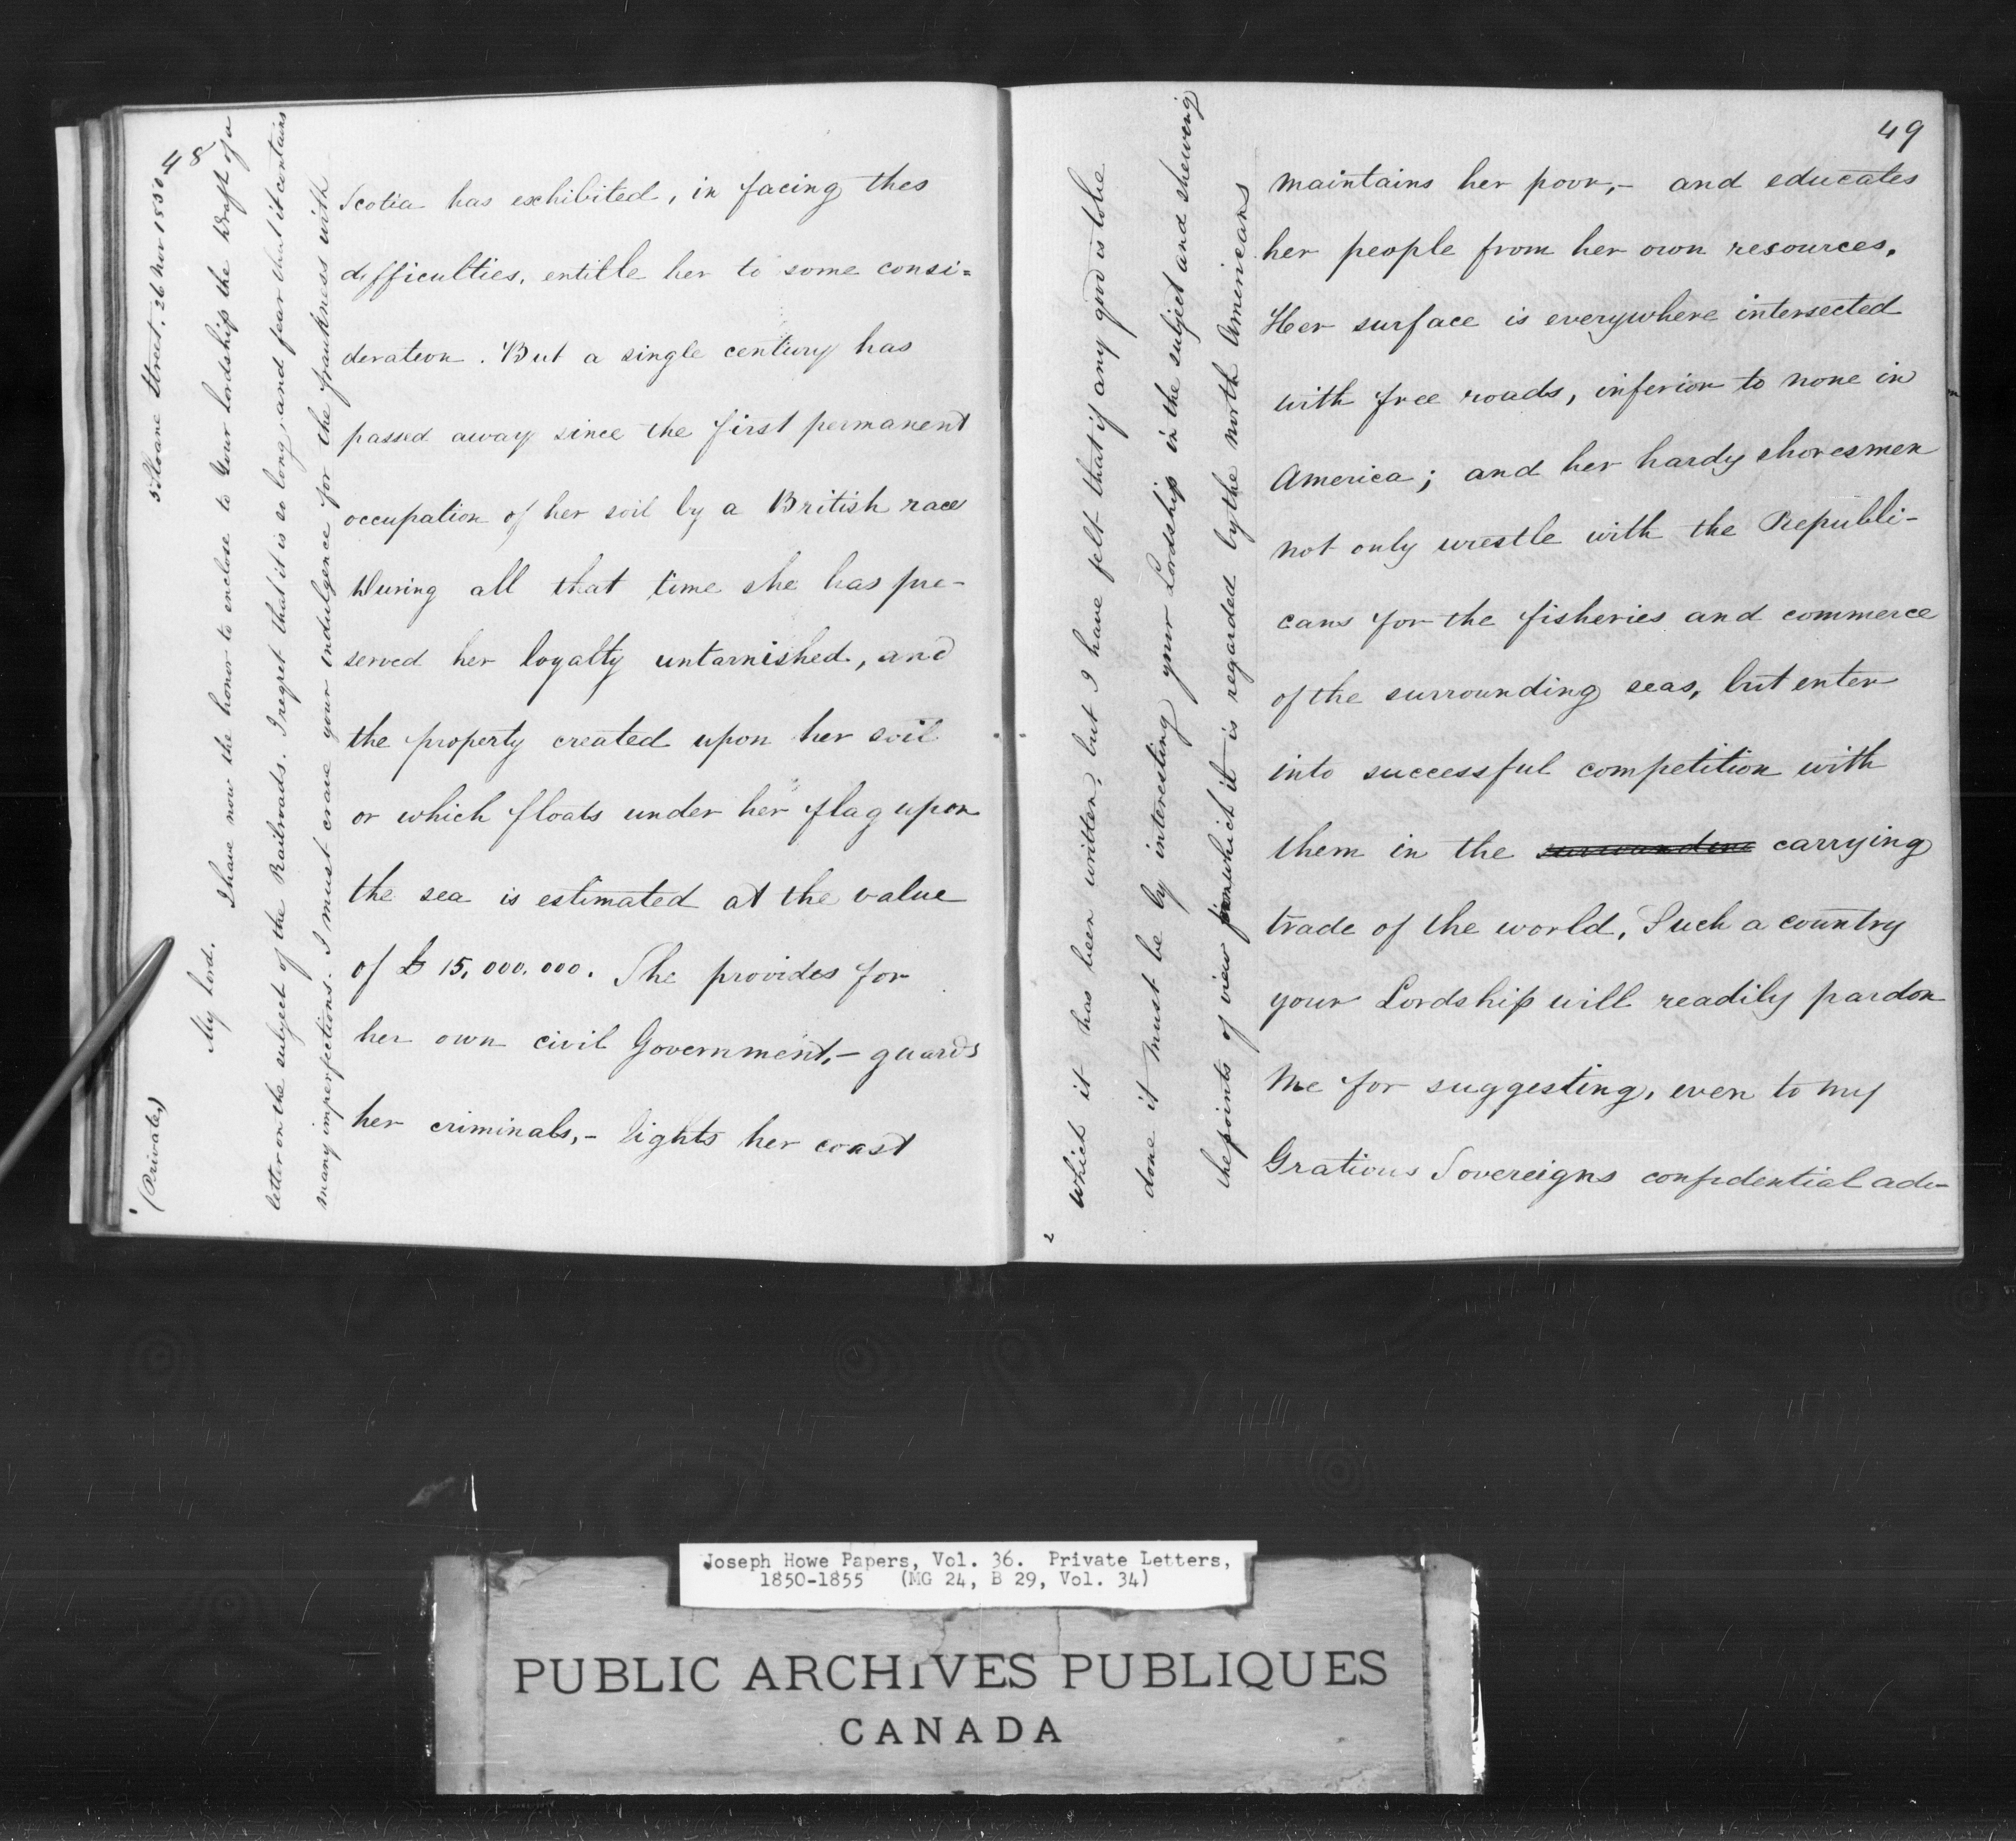 48
Scotia has exhibited, in facing thes
difficulties, entitle her to some consi=
deration. But a single century has
passed away since the first permanent
occupation of her soil by a British race
During all that time she has pre-
served her loyalty untarnished, and
the property created upon her soil
or which floats under her flag upon
the sea is estimated at the value
of £ 15,000.000. She provides for
her own civil Government,- guards
her criminals,- lights her coast
(Private,)
5 Sloane Street. 26 Nov 1850
My Lord.
I have now the honor to enclose to Your Lordship the Draft of a
letter on the subject of the Railroads. I regret that it is so long, and fear that it contains
many imperfections. I must crave your indulgence for the frankness with
2
which it has been written, but I have felt that if any good is to be
done it must be by interesting your Lordship in the subject and shewing
the points of view from which it is regarded by the north Americans
49
maintains her poor,- and educates
her people from her own resources.
Her surface is everywhere intersected
with free roads, inferior to none in
America; and her hardy shoresmen
not only wrestle with the Republi-
cans for the fisheries and commerce
of the surrounding seas, but enter
into successful competition with
them in the surroundine carrying
trade of the world. Such a country
your Lordship will readily pardon
me for suggesting, even to my
Gratious Sovereigns confidential adv-
Joseph Howe Papers, Vol. 36. Private Letters,
1850-1855 (MG 24, B 29, Vol. 34)
PUBLIC ARCHIVES PUBLIQUES
CANADA